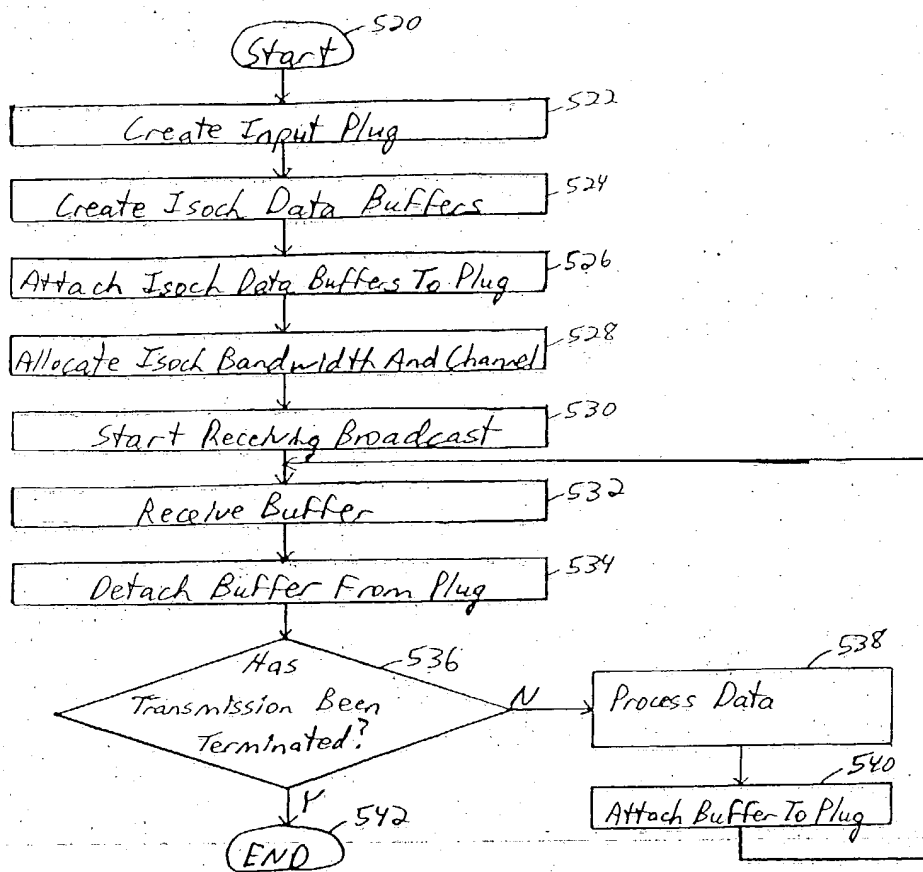 520
Start
522
Create Input Plug
524
Create Isoch Data Buffers
526
Attach Isoch Data Buffers To Plug
528
Allocate Isoch Bandwidth And Channel
530
Start Receiving Broadcast
532
Receive Buffer
534
Detach Buffer From Plug
536
Has
Transmission Been
Terminated?
N
538
Process Data
540
Attach Buffer To Plug
Y
542
END